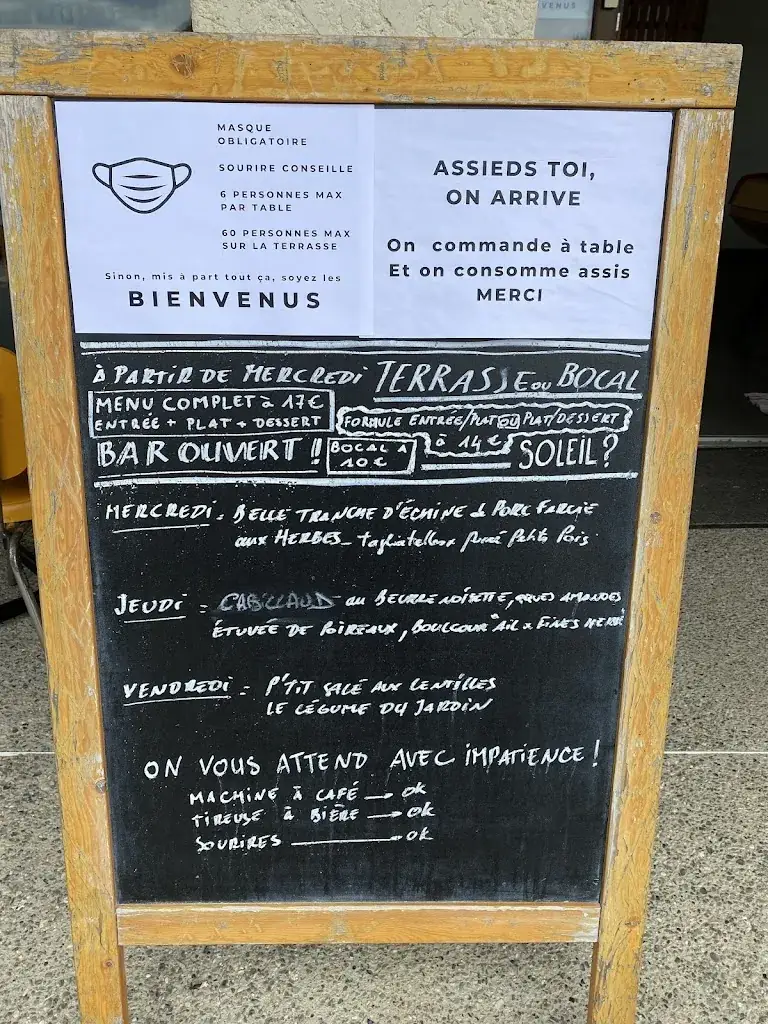 VENUS
MASQUE
OBLIGATOIRE
SOURIRE CONSEILLE
6 PERSONNES MAX
PAR TABLE
60 PERSONNES MAX
SUR LA TERRASSE
Sinon, mis à part tout ça, soyez les
BIENVENUS
ASSIEDS TOI,
ON ARRIVE
On commande à table
Et on consomme assis
MERCI
À PARTIR DE MERCREDI TERRASSE OU BOCAL
MENU COMPLET à 17€
ENTRÉE + PLAT + DESSERT
FORMULE ENTRÉE/PLAT OU PLAT/DESSERT
à 14€
BAR OUVERT !!
BOCAL À
10€
SOLEIL?
MERCREDI : BELLE TRANCHE D'ÉCHINE d PORC FARCIE
aux HERBES - tagliatelles Petits Pois
JEUDI : CABILLAUD au BEURRE NOISETTE, AMANDES
ÉTUVÉE DE POIREAUX, BOULGOUR AIL & FINES HERBES
VENDREDI : P'TIT SALÉ AUX LENTILLES
LE LÉGUME DU JARDIN
ON VOUS ATTEND AVEC IMPATIENCE !
MACHINE À CAFÉ → ok
TIREUSE à BIÈRE → ok
SOURIRES → ok